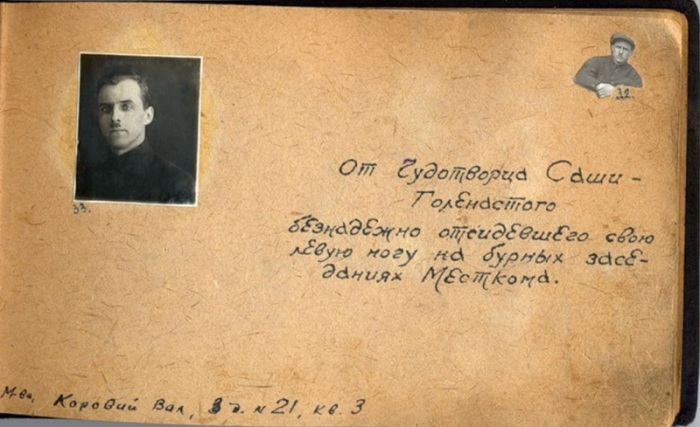 32.
33.
От Чудотворца Саши –
Голенастого
безнадежно отсидевшего свою
левую ногу на бурных засе-
даниях Месткома.
М-ва, Коровий Вал, д. № 21, кв. 3